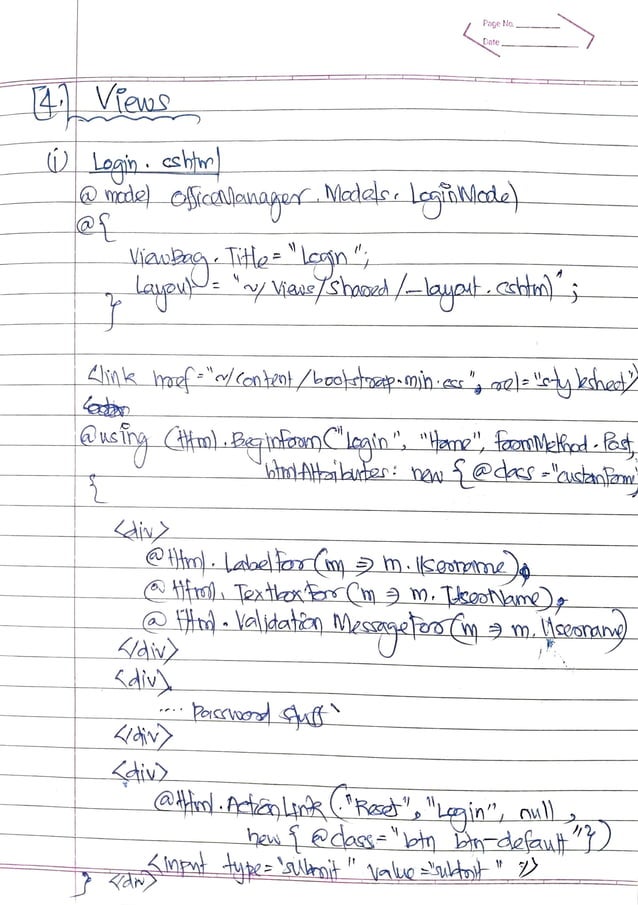 Page No.
Date
4. Views
(i) Login.cshtml
@model OfficeManager.Models.LoginModel
@{
ViewBag.Title = "Login";
Layout = "~/Views/Shared/_layout.cshtml";
}
<link href="~/content/bootstrap.min.css", rel="stylesheet"/>
@using (Html.BeginForm("Login", "Home", FormMethod.Post,
htmlAttributes: new { @class="customForm
{
<div>
@Html.LabelFor(m => m.Username),
@Html.TextboxFor(m => m.UserName),
@Html.ValidationMessageFor(m => m.Username)
</div>
<div>
.... Password stuff
</div>
<div>
@Html.ActionLink("Reset", "Login", null,
new { @class="btn btn-default"})
<input type='submit" value="submit" />
} <div>